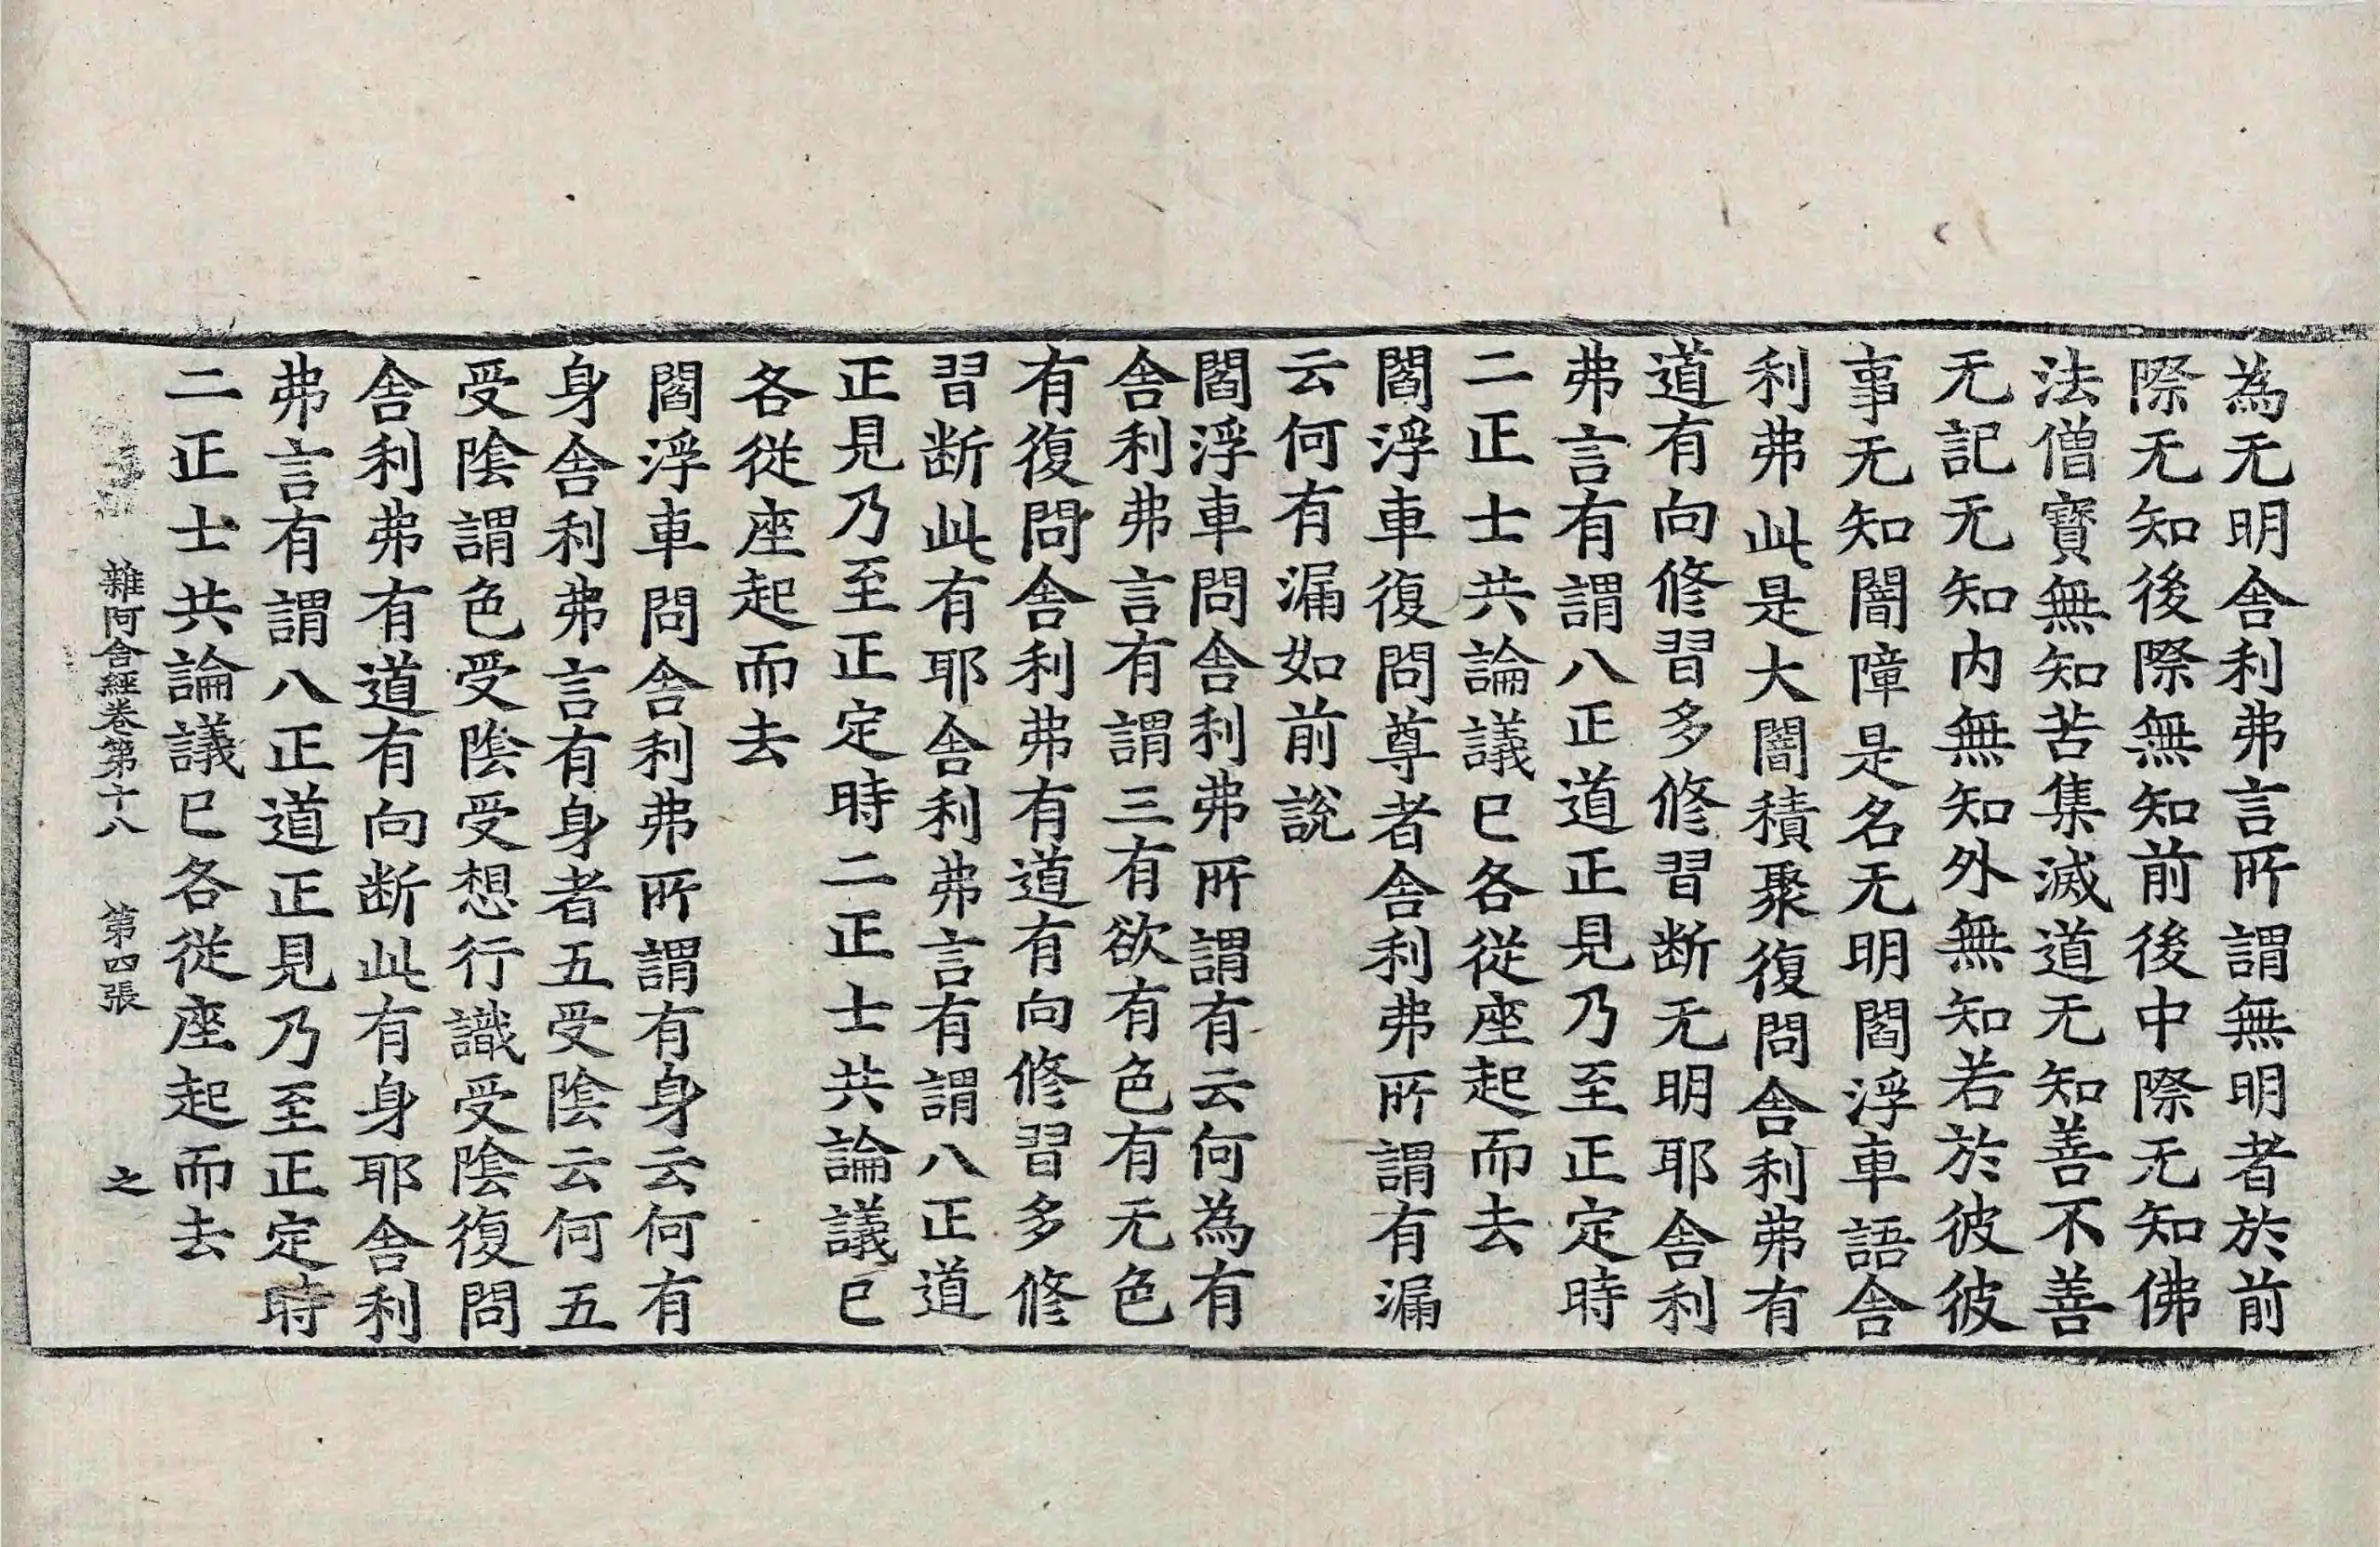 為无明舍利弗言所謂無明者於前
際无知後際無知前後中際无知佛
法僧寶無知苦集滅道无知善不善
无記无知内無知外無知若於彼彼
事无知闇障是名无明閻浮車語舍
利弗此是大闇積聚復問舍利弗有
道有向修習多修習断无明耶舍利
弗言有謂八正道正見乃至正定時
二正士共論議已各從座起而去
閻浮車復問尊者舍利弗所謂有漏
云何有漏如前說
閻浮車問舍利弗所謂有云何為有
舍利弗言有謂三有欲有色有无色
有復問舍利弗有道有向修習多修
習断此有耶舍利弗言有謂八正道
正見乃至正定時二正士共論議已
各從座起而去
閻浮車問舍利弗所謂有身云何有
身舍利弗言有身者五受陰云何五
受陰謂色受陰受想行識受陰復問
舍利弗有道有向断此有身耶舍利
弗言有謂八正道正見乃至正定時
二正士共論議已各從座起而去
雜阿含經卷第十八 第四張 之